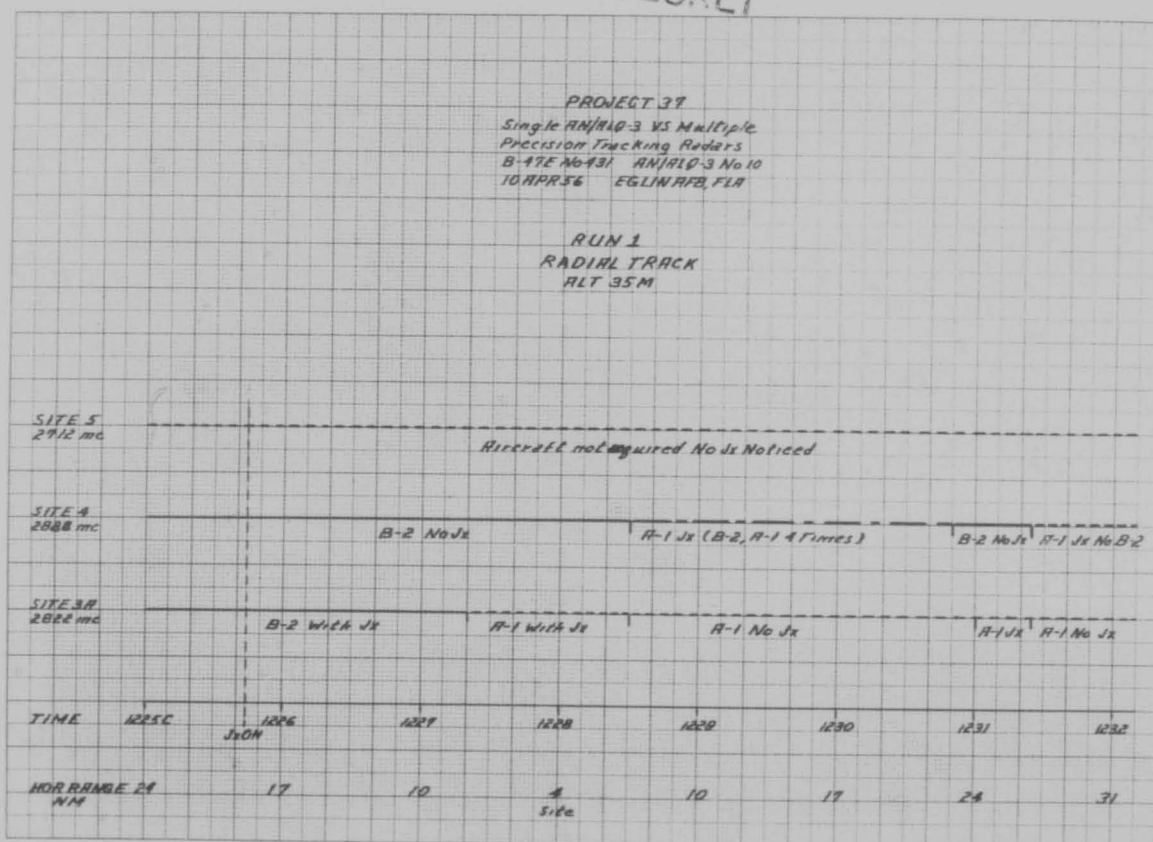 PROJECT 37
Single AN/ALQ-3 VS Multiple
Precision Tracking Radars
B-47E No 431 AN/ALQ-3 No 10
10 APR 56 EGLIN AFB, FLA
RUN 1
RADIAL TRACK
ALT 35M
SITE 5
2712 mc
Aircraft not aquired No Jx Noticed
SITE 4
2888 mc
B-2 No Jx
A-1 Jx (B-2, A-1 4 Times)
B-2 No Jx
A-1 Jx No B-2
SITE 3A
2822 mc
B-2 With Jx
A-1 With Jx
A-1 No Jx
A-1 Jx
A-1 No Jx
TIME 1225C 1226 1227 1228 1229 1230 1231 1232
Jx ON
HOR RANGE 24 17 10 4 10 17 24 31
NM Site